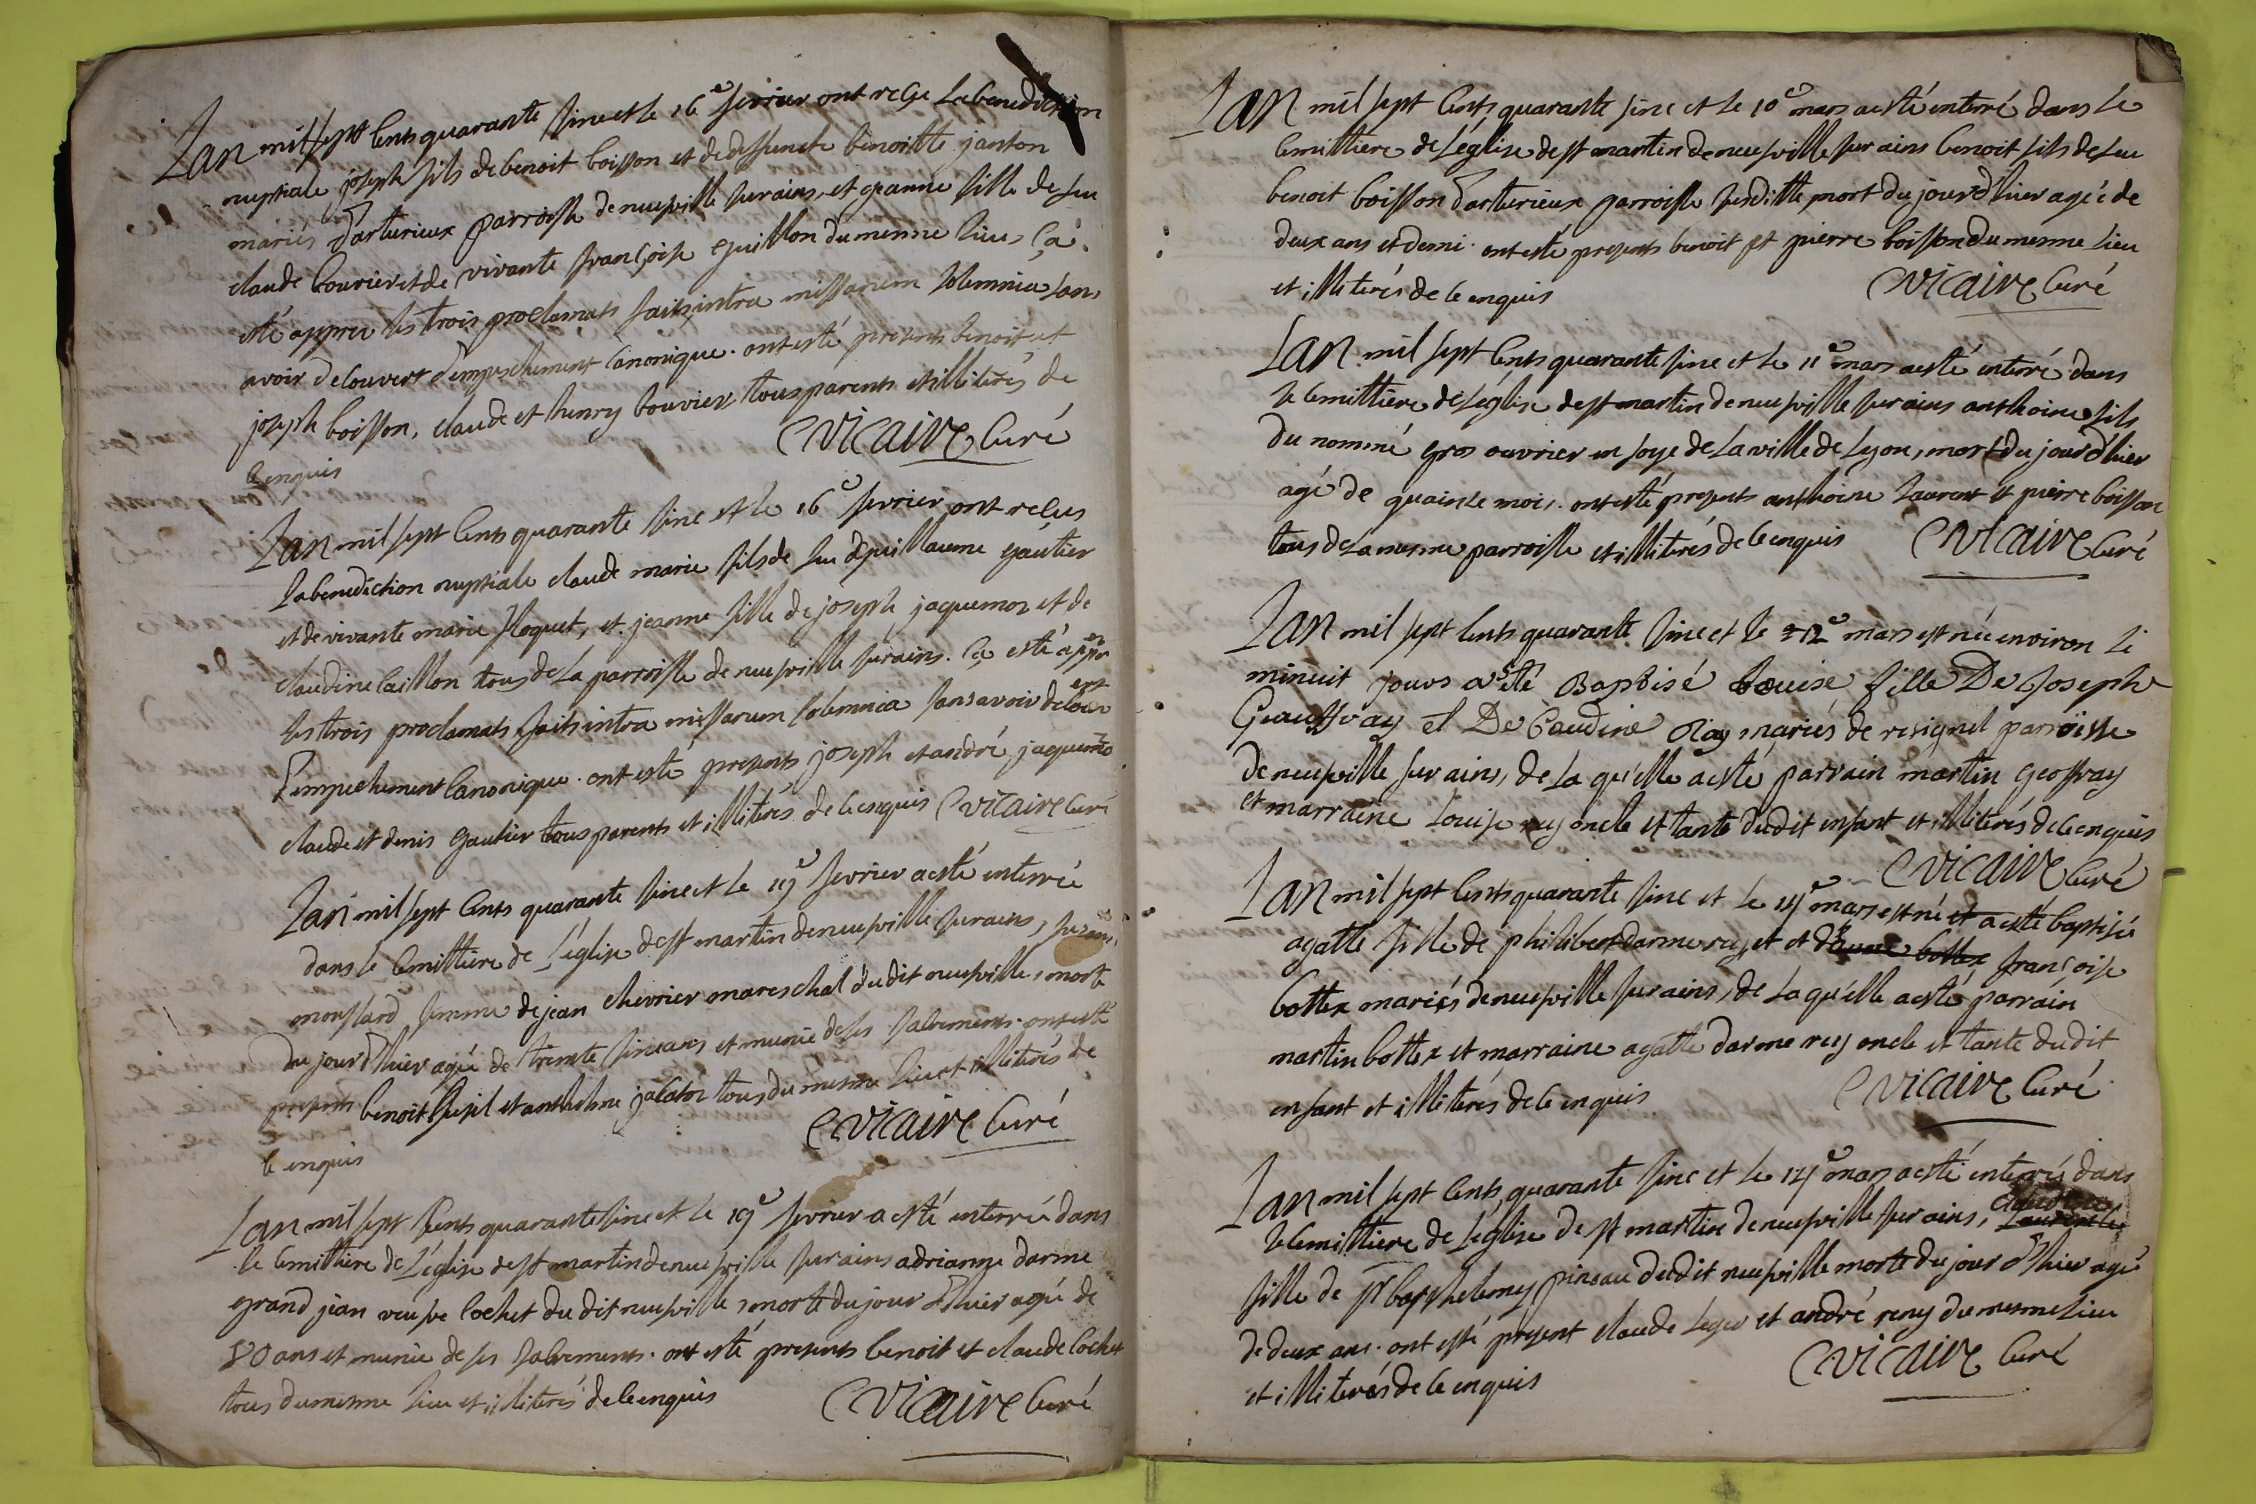 Lan mil sept cents quarante sinc et le 16e fevrier ont reçu la benediction
nuptiale joseph fils de benoit boisson et de deffuncte benoitte janton
mariés d'arturieux parroisse de neufville sur ains, et jeanne fille de feu
claude bouvier et de vivante françoise guillon du mesme lieu, ça
esté appres les trois proclamats faits intra missarum solemnia sans
avoir decouvert d'empeschement canonique. ont esté presents benoit et
joseph boisson, claude et henry bouvier tous parents et illiterés de
ce enquis Vicaire curé
Lan mil sept cents quarante sinc et le 16e fevrier ont reçus
la benediction nuptiale claude marie fils de feu guillaume gautier
et de vivante marie floquet, et jeanne fille de joseph jaquemon et de
claudine caillon tous de la parroisse de neufville sur ains. ça esté appres
les trois proclamats faits intra missarum solemnia sans avoir decouvert
d'empechement canonique. ont esté presents joseph et andré jaquemon
claude et denis gautier tous parents et illiterés de ce enquis Vicaire curé
Lan mil sept cents quarante sinc et le 19e fevrier a esté enterrée
dans le cemittiere de l'église de st martin de neufville sur ains,
monssard femme de jean chevrier mareschal dudit neufville, morte
du jour d'hier agée de trente sinc ans et munie de ses sacrements. ont esté
presents benoit et anthelme jacaton tous du mesme lieu et illiterés de
ce enquis Vicaire curé
Lan mil sept cents quarante sinc et le 19e fevrier a esté enterrée dans
le cemittiere de l'église de st martin de neufville sur ains adrianne darme
grand jean veufve cochet du dit neufville, morte du jour d'hier agée de
80 ans et munie de ses sacrements. ont esté presents benoit et claude cochet
tous du mesme lieu et illiterés de ce enquis Vicaire curé
Lan mil sept cents quarante sinc et le 10e mars a esté enterré dans le
cemittiere de l'église de st martin de neufville sur ains benoit fils de feu
benoit boisson d'arturieux parroisse susditte, mort du jour d'hier agée de
deux ans et demi. ont esté presents benoit et pierre boisson du mesme lieu
et illiterés de ce enquis Vicaire curé
Lan mil sept cents quarante sinc et le 11e mars a esté enterré dans
le cemittiere de l'église de st martin de neufville sur ains anthoine fils
du nommé gros ouvrier en soye de la ville de Lyon, mort du jour d'hier
agé de quainse mois. ont esté presents anthoine Laurent et pierre boisson
tous de la mesme parroisse et illiterés de ce enquis Vicaire curé
Lan mil sept cents quarante sinc et le 12e mars est née environ le
minuit jours a esté Baptisé Louise fille De Joseph
Geauffray et De Caudine Ray mariés de resignel parroisse
de neufville sur ains, de la qu'elle a esté parrain martin geoffray
et marraine Louise rey oncle et tante dudit enfant et illiterés de ce enquis
Vicaire curé
Lan mil sept cents quarante sinc et le 14e mars est né et a esté baptisée
agatte fille de philibert darmerey et et d'anne bottex françoise
bottex mariés de neufville sur ains, de la qu'elle a esté parrain
martin bottex et marraine agatte darmerey oncle et tante dudit
enfant et illiterés de ce enquis Vicaire curé
Lan mil sept cents quarante sinc et le 14e mars a esté enterrés dans
le cemittiere de l'église de st martin de neufville sur ains, claudine
fille de sr barthelemy pineau dudit neufville morte du jour d'hier agé
de deux ans. ont esté present claude Leger et andré reny du mesme lieu
et illiterés de ce enquis Vicaire curé